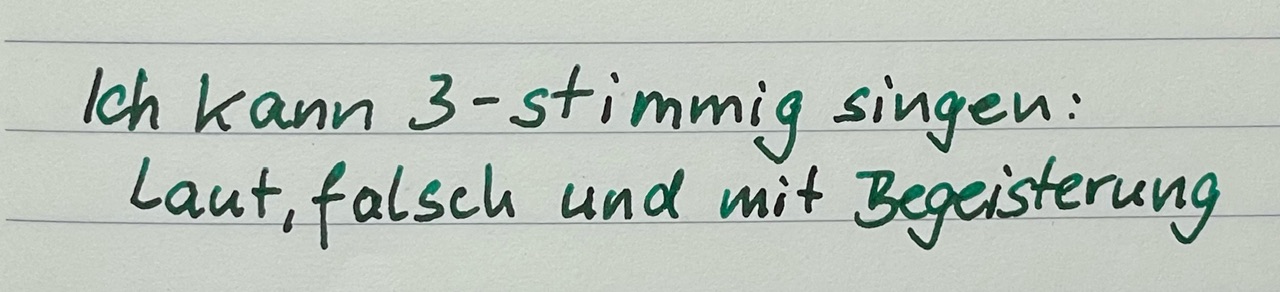 Ich kann 3-stimmig singen:
Laut, falsch und mit Begeisterung